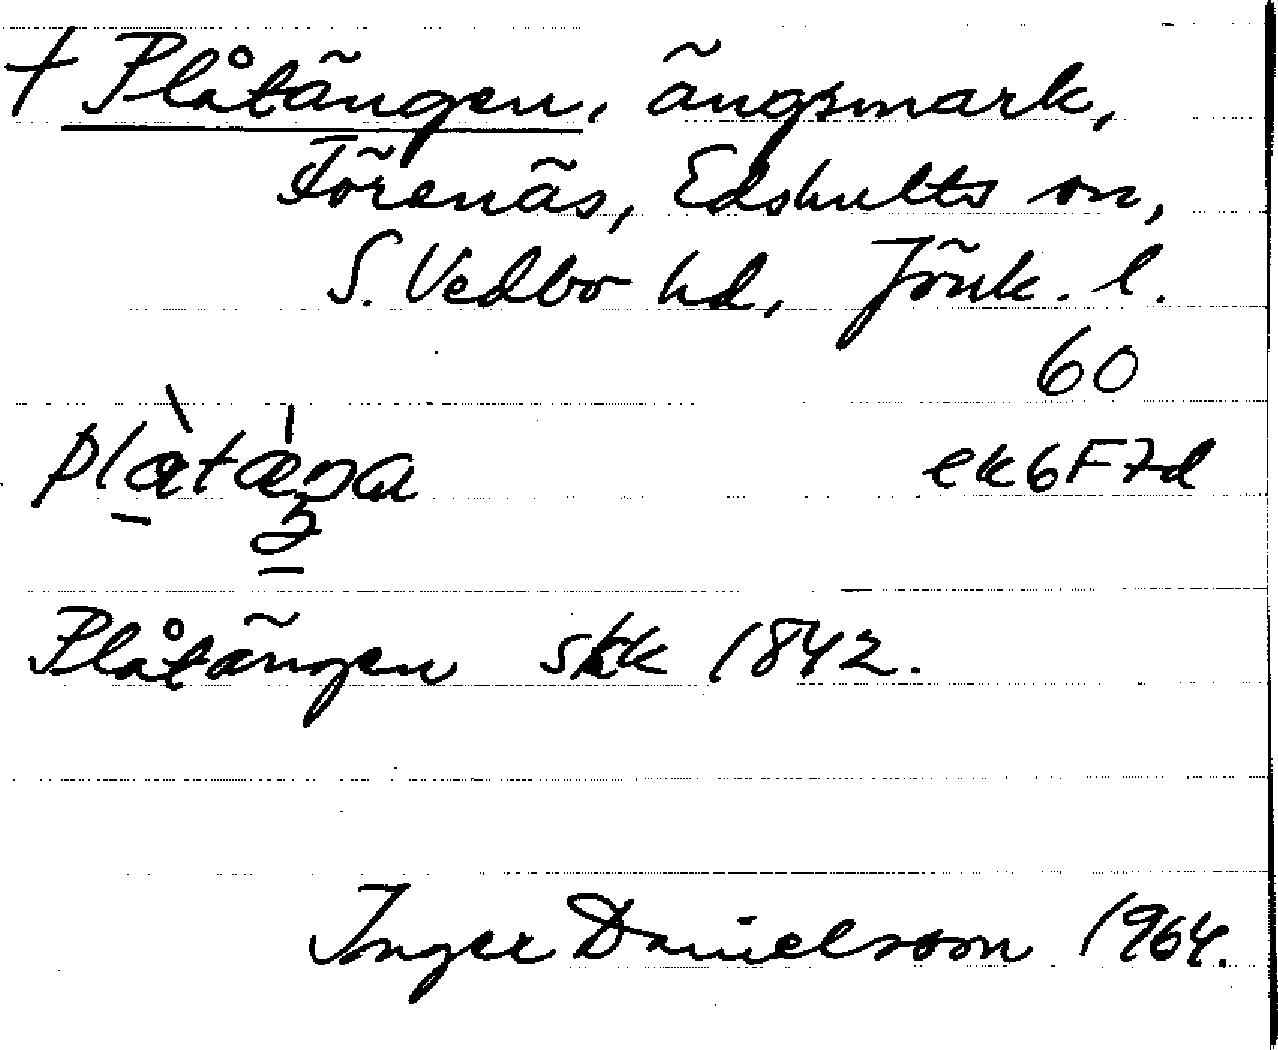 + Plåtängen, ängsmark,
Förenäs, Edshults sn,
S. Vedbo hd, Jönk. l.
60
ek6F7d
Plåtängen skk 1842.
Inger Danielsson 1964.